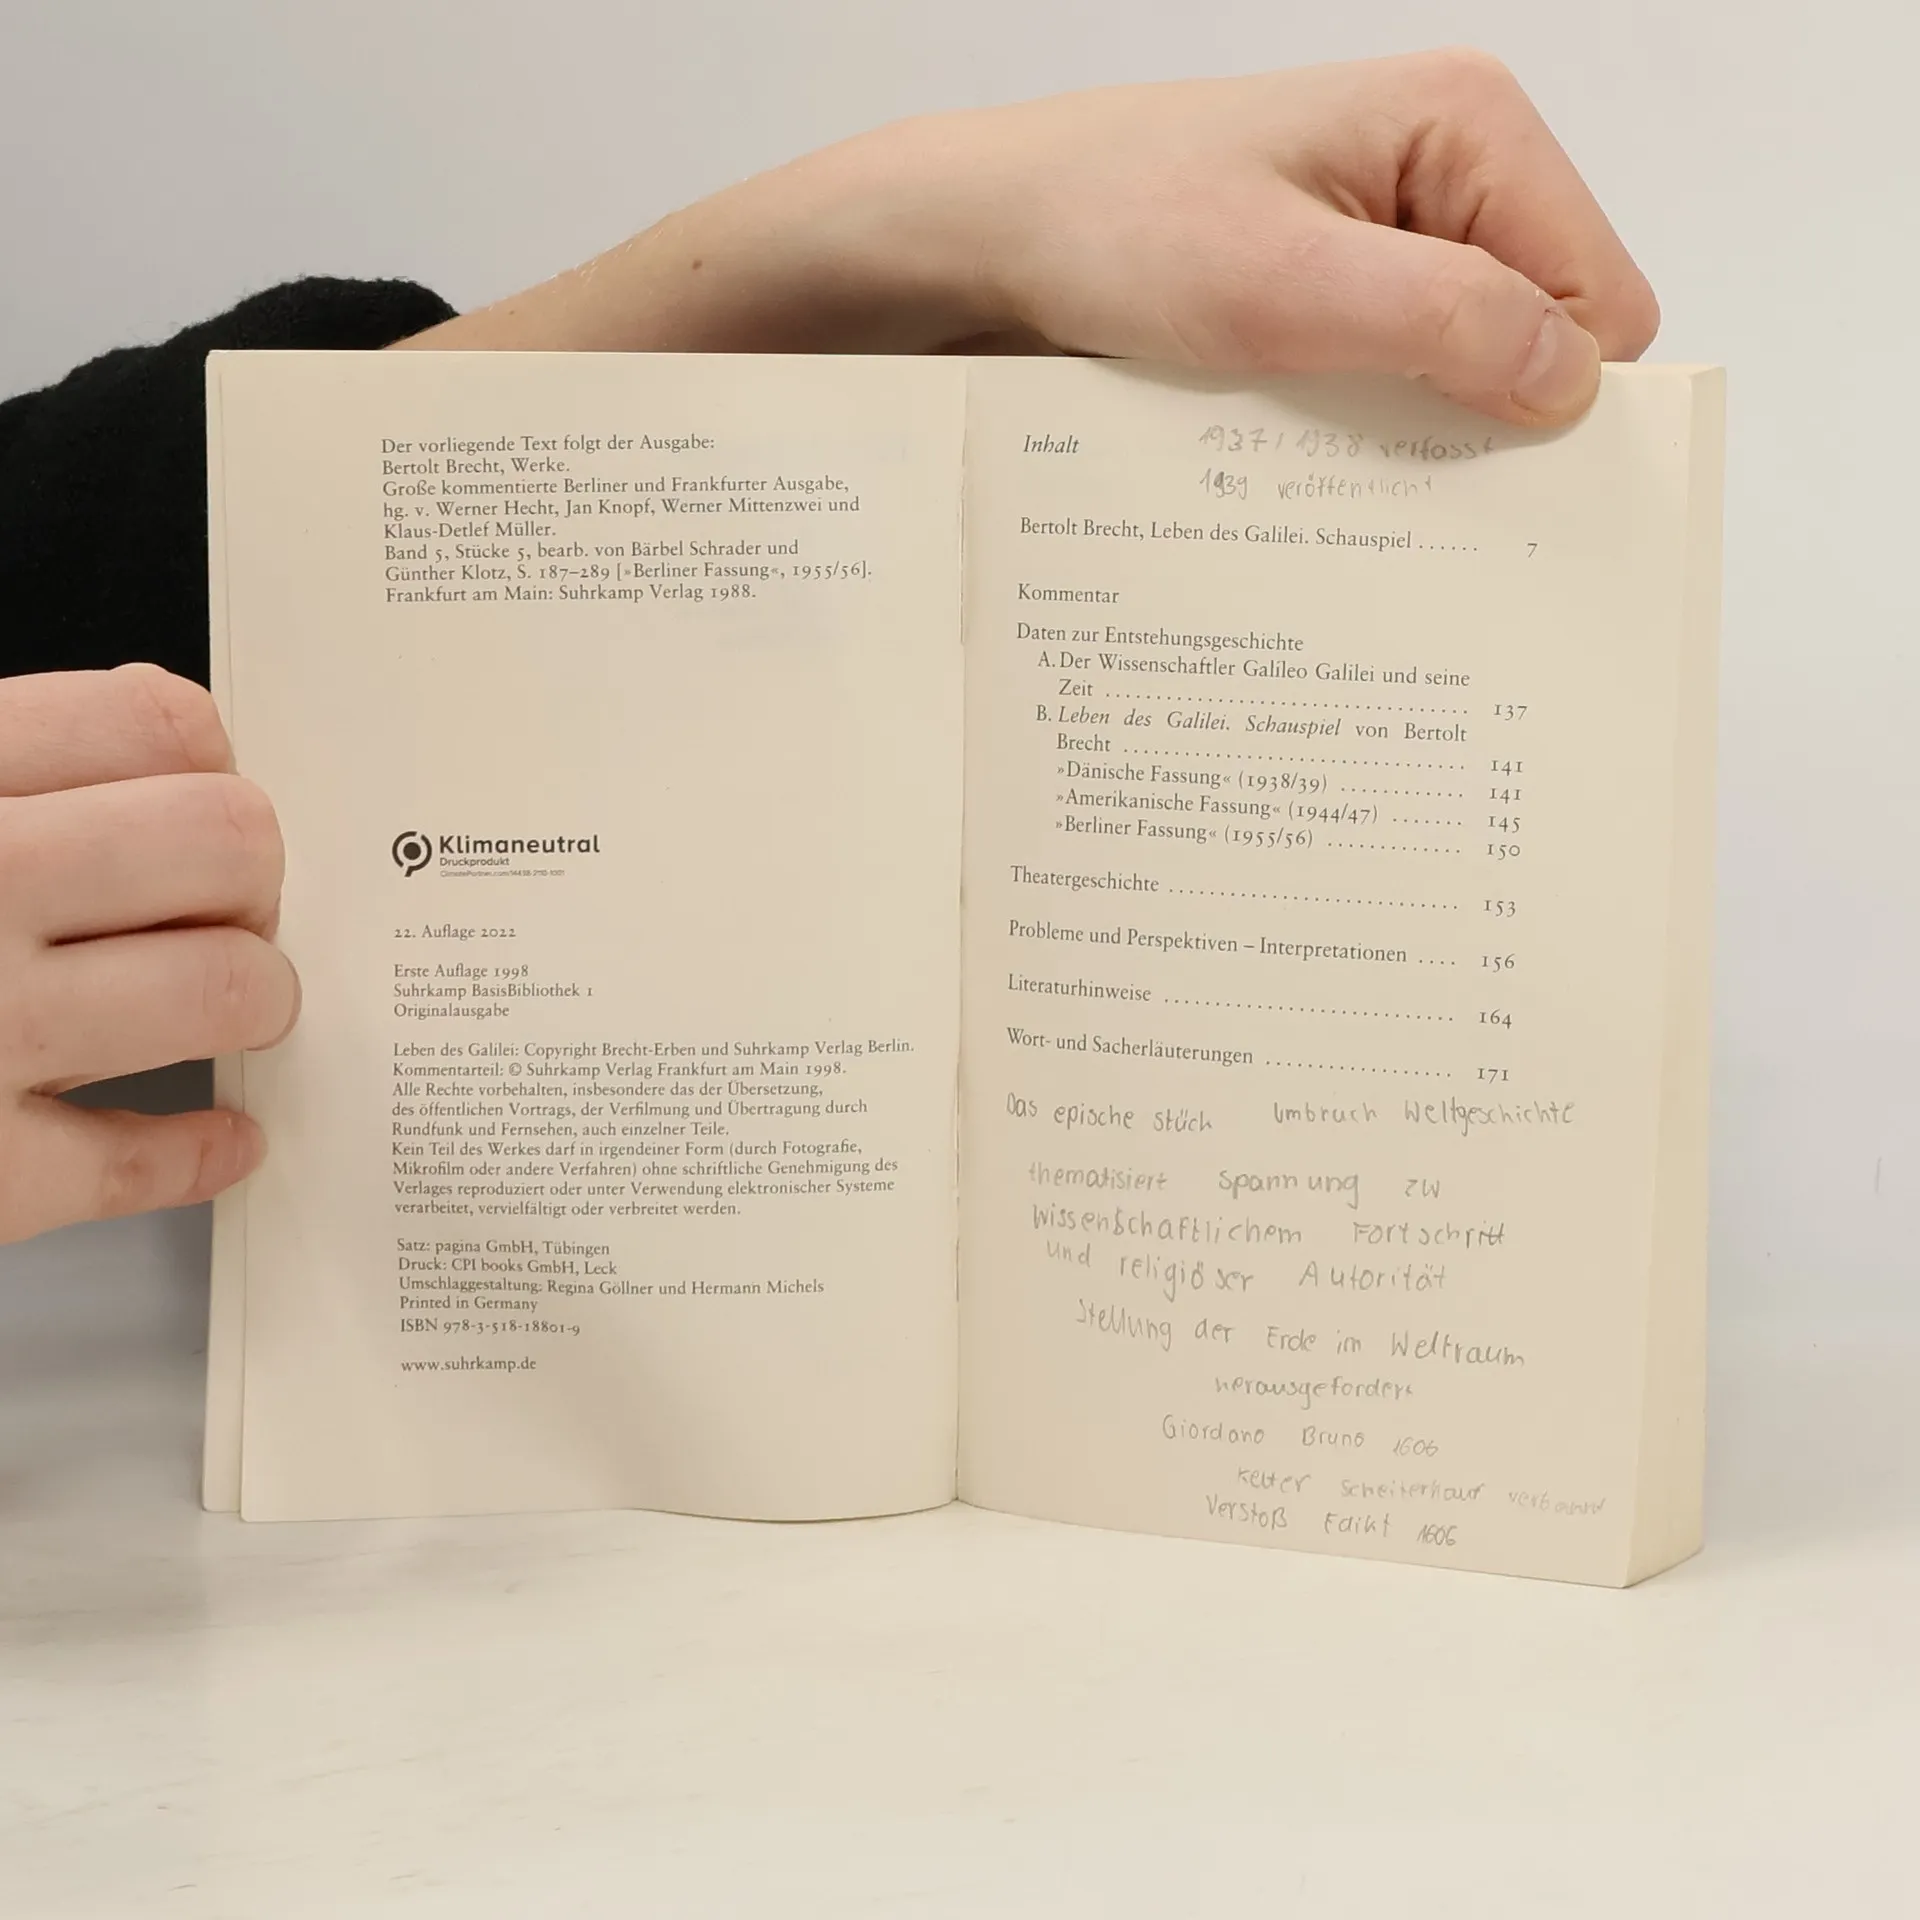 Der vorliegende Text folgt der Ausgabe:
Bertolt Brecht, Werke.
Große kommentierte Berliner und Frankfurter Ausgabe,
hg. v. Werner Hecht, Jan Knopf, Werner Mittenzwei und
Klaus-Detlef Müller.
Band 5, Stücke 5, bearb. von Bärbel Schrader und
Günther Klotz, S. 187–289 [»Berliner Fassung«, 1955/56].
Frankfurt am Main: Suhrkamp Verlag 1988.
Klimaneutral
Druckprodukt
22. Auflage 2022
Erste Auflage 1998
Suhrkamp BasisBibliothek 1
Originalausgabe
Leben des Galilei: Copyright Brecht-Erben und Suhrkamp Verlag Berlin.
Kommentarteil: © Suhrkamp Verlag Frankfurt am Main 1998.
Alle Rechte vorbehalten, insbesondere das der Übersetzung,
des öffentlichen Vortrags, der Verfilmung und Übertragung durch
Rundfunk und Fernsehen, auch einzelner Teile.
Kein Teil des Werkes darf in irgendeiner Form (durch Fotografie,
Mikrofilm oder andere Verfahren) ohne schriftliche Genehmigung des
Verlages reproduziert oder unter Verwendung elektronischer Systeme
verarbeitet, vervielfältigt oder verbreitet werden.
Satz: pagina GmbH, Tübingen
Druck: CPI books GmbH, Leck
Umschlaggestaltung: Regina Göllner und Hermann Michels
Printed in Germany
ISBN 978-3-518-18801-9
www.suhrkamp.de
Inhalt 1937/1938 verfasst
1939 veröffentlicht
Bertolt Brecht, Leben des Galilei. Schauspiel ...... 7
Kommentar
Daten zur Entstehungsgeschichte
A. Der Wissenschaftler Galileo Galilei und seine
Zeit .................................... 137
B. Leben des Galilei. Schauspiel von Bertolt
Brecht .................................. 141
»Dänische Fassung« (1938/39) ............ 141
»Amerikanische Fassung« (1944/47) ....... 145
»Berliner Fassung« (1955/56) ............. 150
Theatergeschichte ............................ 153
Probleme und Perspektiven – Interpretationen .... 156
Literaturhinweise ............................ 164
Wort- und Sacherläuterungen .................. 171
Das epische stück Umbruch Weltgeschichte
thematisiert Spannung zw
wissenschaftlichem Fortschritt
und religiöser Autorität
Stellung der Erde im Weltraum
herausgefordert
Giordano Bruno 1606
Ketter Scheiterhauf verbannt
Verstoß Edikt 1606